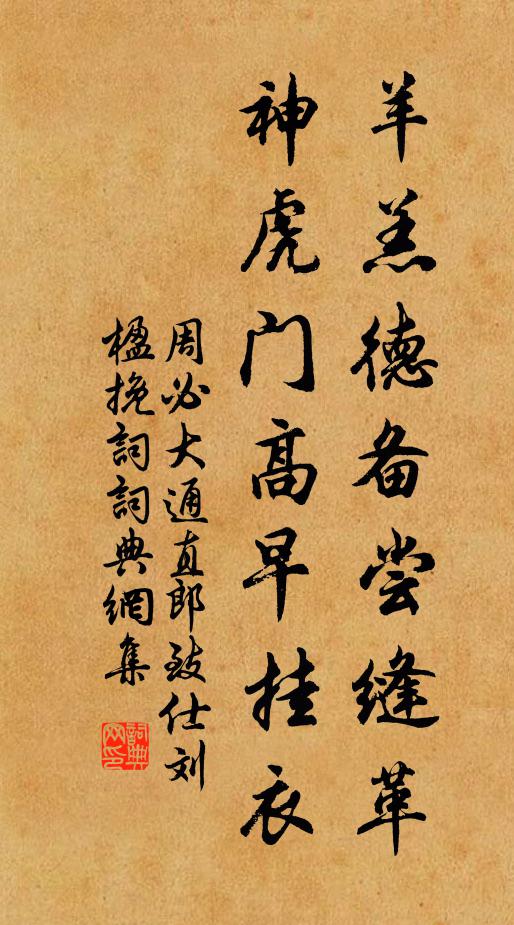 羊羔德备尝缝革
神虎门高早挂衣
周必大通直郎致仕刘
楹挽詞詞典網集
詞典网印